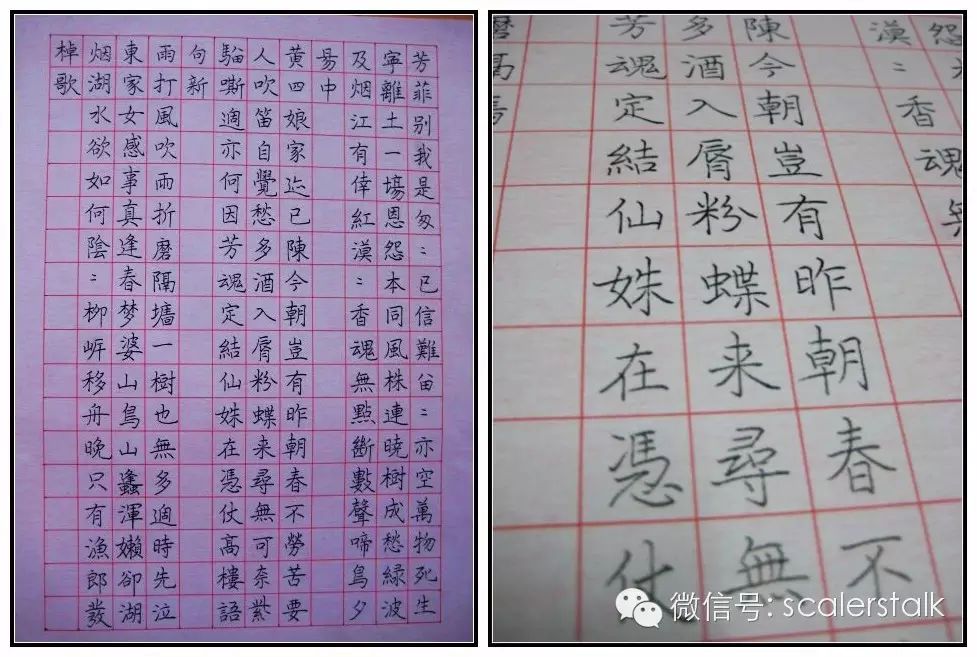 芳菲别我是匆二已信難留二亦空萬物死生
寧離土一塲恩怨本同風株連曉樹成愁緑波
及烟江有倖紅漠二香魂無點斷數聲啼鳥夕
昜中
黄四娘家迹已陳今朝豈有昨朝春不勞苦要
人吹笛自覺愁多酒入脣粉蝶来尋無可奈紫
騮嘶適亦何因芳魂定結仙姝在憑仗高樓語
句新
雨打風吹雨折磨隔墻一樹也無多適時先泣
東家女感事真逢春梦婆山鳥山蠭渾嬾卻湖
烟湖水欲如何陰二柳岍移舟晚只有漁郎發
棹歌
怨
漠二香魂無
陳今朝豈有昨朝春不
多酒入脣粉蝶来尋無
芳魂定結仙姝在憑仗
微信号: scalerstalk